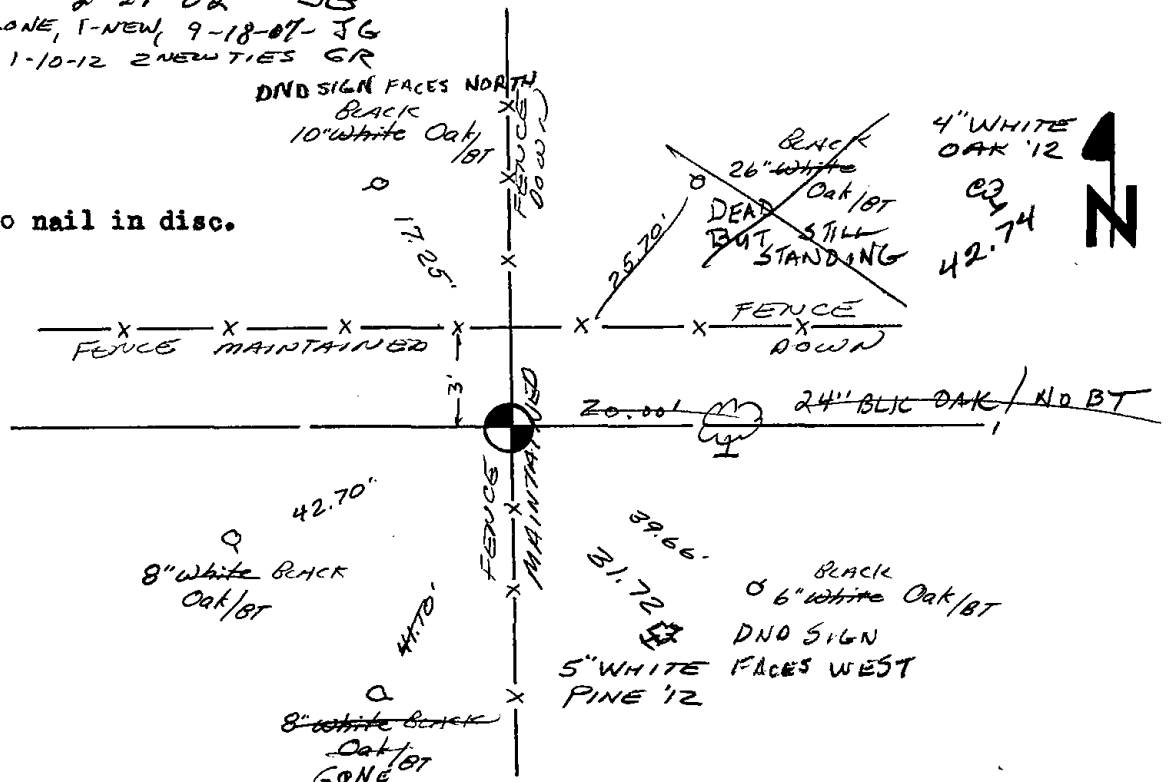 2-21-02 JG
ONE, 1-NEW, 9-18-07- JG
1-10-12 2 NEW TIES GR
DND SIGN FACES NORTH
BLACK
10" White Oak/BT
FENCE DOWN
BLACK
26" White
Oak/BT
DEAD
BUT STILL
STANDING
4" WHITE
OAK '12
42.74
N
o nail in disc.
17.25'
25.70'
FENCE MAINTAINED
FENCE
DOWN
3'
20.00'
24" BLK OAK / NO BT
FENCE MAINTAINED
42.70'
8" White BLACK
Oak/BT
39.66'
31.72
BLACK
6" White Oak/BT
DND SIGN
FACES WEST
5" WHITE
PINE '12
41.70'
8" White BLACK
Oak/BT
GONE